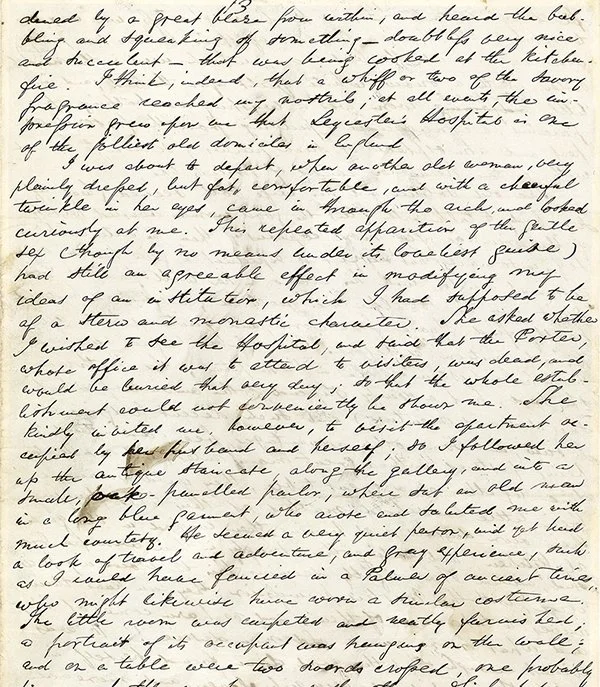 13
dened by a great blaze from within, and heard the bub-
bling and squeaking of something – doubtless very nice
and succulent – that was being cooked at the kitchen-
fire. I think, indeed, that a whiff or two of the savory
fragrance reached my nostrils; at all events, the im-
pression grew upon me that Leycester's Hospital is one
of the jolliest old domiciles in England
I was about to depart, when another old woman, very
plainly dressed, but fat, comfortable, and with a cheerful
twinkle in her eyes, came in through the arch, and looked
curiously at me. This repeated apparition of the gentle
sex (though by no means under its loveliest guise)
had still an agreeable effect in modifying my
ideas of an institution, which I had supposed to be
of a stern and monastic character. She asked whether
I wished to see the Hospital, and said that the Porter,
whose office it was to attend to visitors, was dead, and
would be buried that very day; so that the whole estab-
lishment could not conveniently be shown me. She
kindly invited me, however, to visit the apartment oc-
cupied by her husband and herself; so I followed her
up the antique staircase, along the gallery, and into a
small, oak-panelled parlor, where sat an old man
in a long blue garment, who arose and saluted me with
much courtesy. He seemed a very quiet person, and yet had
a look of travel and adventure, and gray experience, such
as I could have fancied in a Palmer of ancient times,
who might likewise have worn a similar costume.
The little room was carpeted and neatly furnished;
a portrait of its occupant was hanging on the wall;
and on a table were two swords crossed, one probably